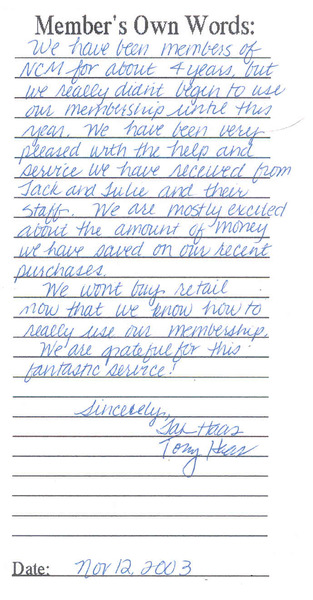 Member's Own Words:
We have been members of
NCM for about 4 years, but
we really didnt begin to use
our membership until this
year. We have been very
pleased with the help and
service we have received from
Jack and Julie and their
staff. We are mostly excited
about the amount of money
we have saved on our recent
purchases.
We wont buy retail
now that we know how to
really use our membership.
We are grateful for this
fantastic service!
Sincerely,
Haas
Tony Haas
Date: Nov 12, 2003